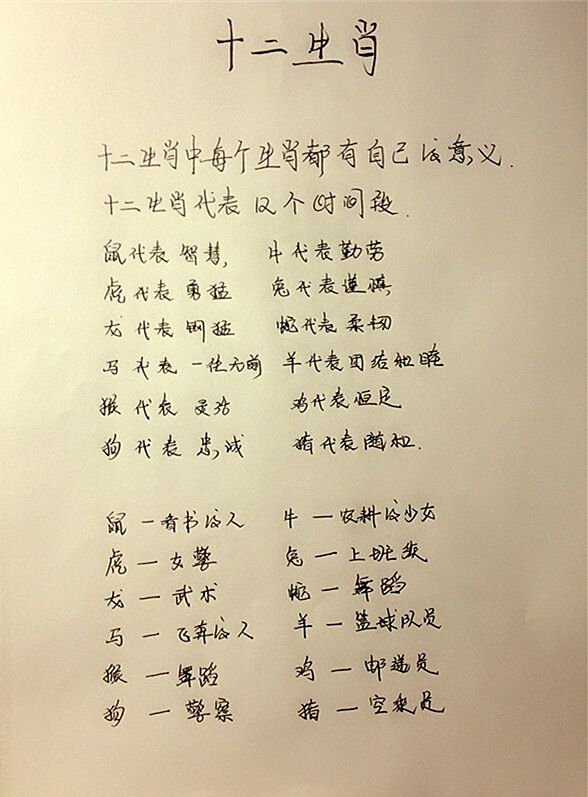 十二生肖
十二生肖中每个生肖都有自己的意义.
十二生肖代表12个时间段.
鼠代表智慧, 牛代表勤劳
虎代表勇猛 兔代表谨慎
龙代表刚猛 蛇代表柔韧
马代表一往无前 羊代表团结和睦
猴代表灵活 鸡代表恒定
狗代表忠诚 猪代表随和.
鼠一看书的人 牛一农耕的少女
虎一女警 兔一上班族
龙一武术 蛇一舞蹈
马一飞奔的人 羊一篮球队员
猴一舞蹈 鸡一邮递员
狗一警察 猪一空乘员